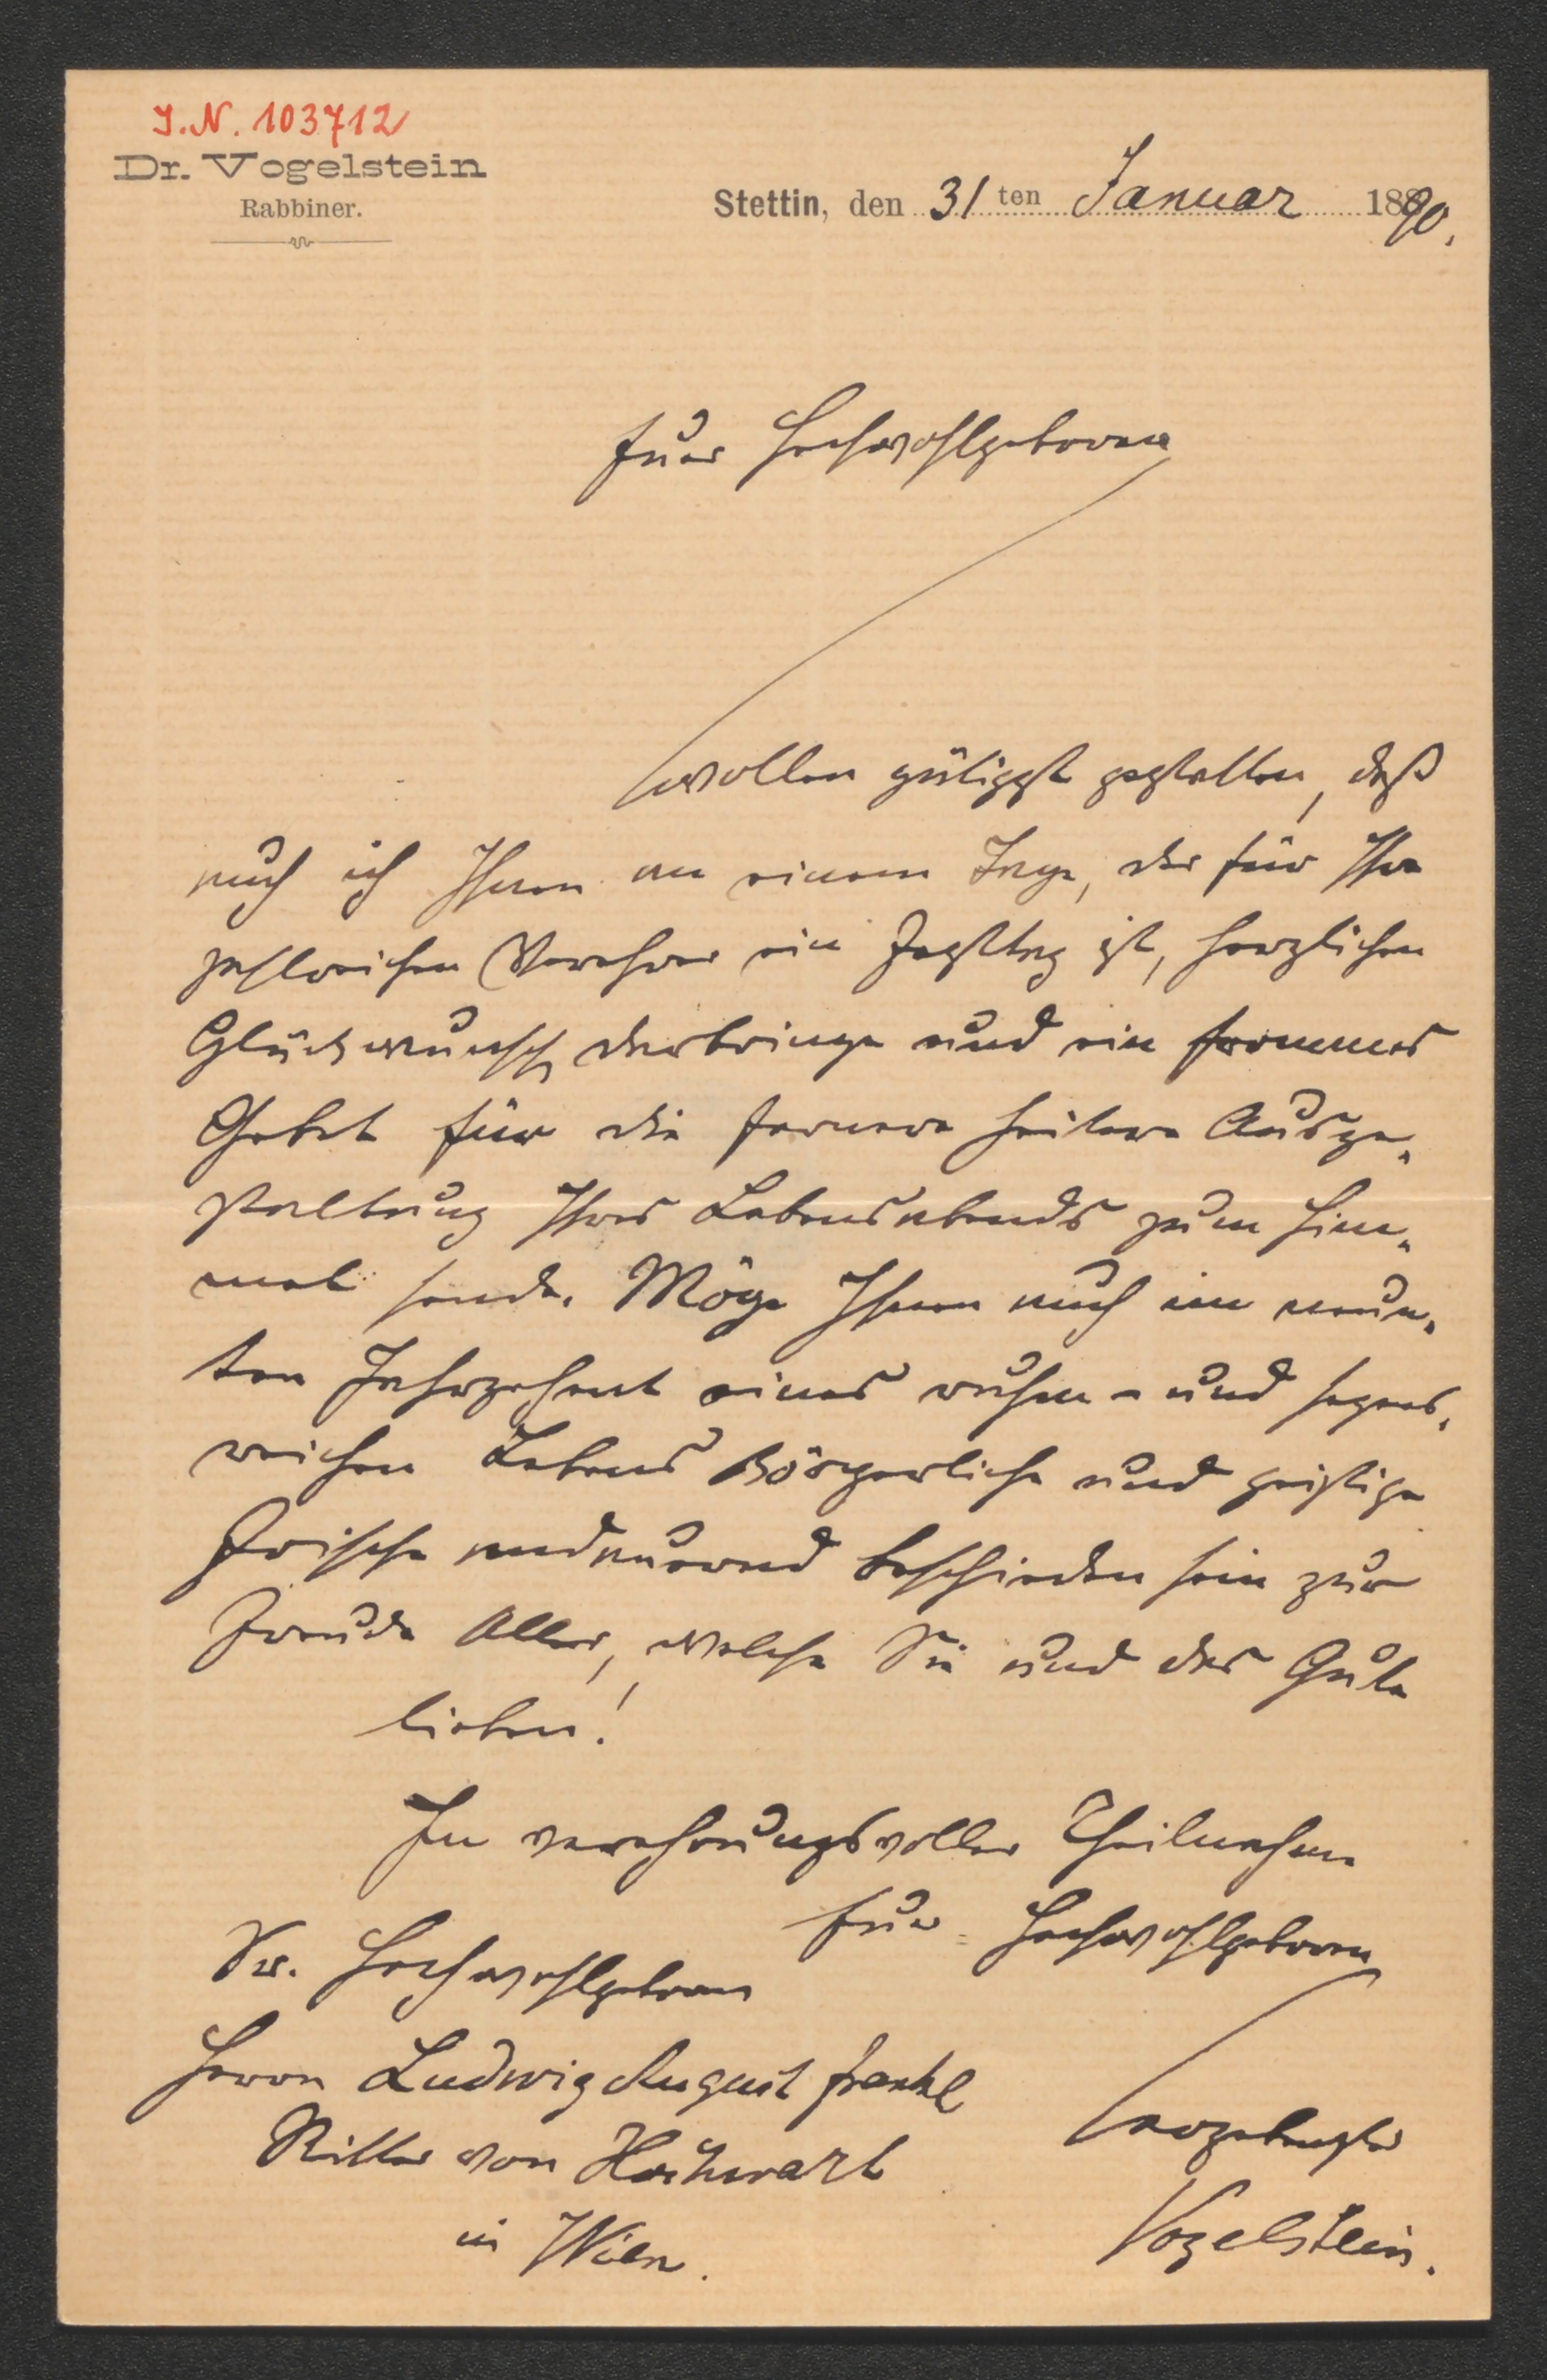 J.N. 103712
Dr. Vogelstein
Rabbiner.
Stettin, den 31ten Januar 1890.
Euer Hochwohlgeboren
wollen gütigst gestatten, daß
auch ich Ihnen an einem Tage, der für Ihre
zahlreichen Verehrer ein Festtag ist, herzlichen
Glückwunsch darbringe und ein frommes
Gebet für die fernere heitere Ausge-
staltung Ihres Lebensabends zum Him-
mel sende. Möge Ihnen auch im neun-
ten Jahrzehent eines ruhm- und segens-
reichen Lebens körperliche und geistige
Frische andauernd beschieden sein zur
Freude Aller, welche Sie und das Gute
lieben!
In verehrungsvoller Theilnahme
Euer Hochwohlgeboren
Sr. Hochwohlgeboren
Herrn Ludwig August Frankl
Ritter von Hochwart
in Wien.
ergebenster
Vogelstein.